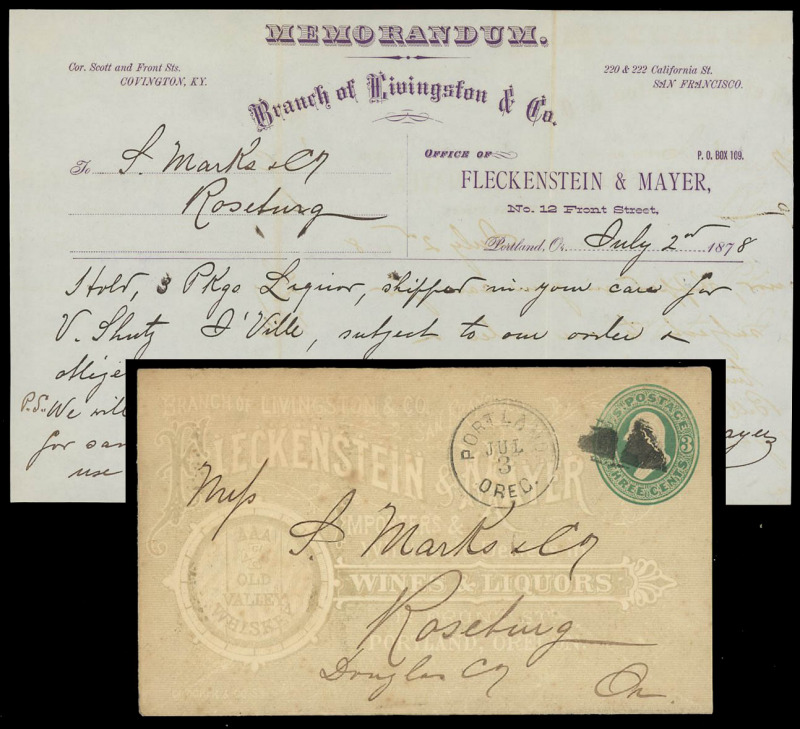 MEMORANDUM.
Cor. Scott and Front Sts.
COVINGTON, KY.
220 & 222 California St.
SAN FRANCISCO.
Branch of Livingston & Co.
To S. Marks & Co
Roseburg
OFFICE OF
P. O. BOX 109.
FLECKENSTEIN & MAYER,
No. 12 Front Street,
Portland, Or. July 2nd 1878
Hold, 3 Pkgs Liquor, shipped in your care for
V. Shutz J'Ville, subject to our order &
oblige
P.S. We will
for
use
BRANCH OF LIVINGSTON & CO.
FLECKENSTEIN & MAYER
IMPORTERS &
WINES & LIQUORS
PORTLAND, OREGON.
AAA
OLD
VALLEY
WHISKEY
PORTLAND
JUL
3
OREG.
U.S. POSTAGE
3
THREE CENTS
Mess
S. Marks & Co
Roseburg
Douglas Co
On